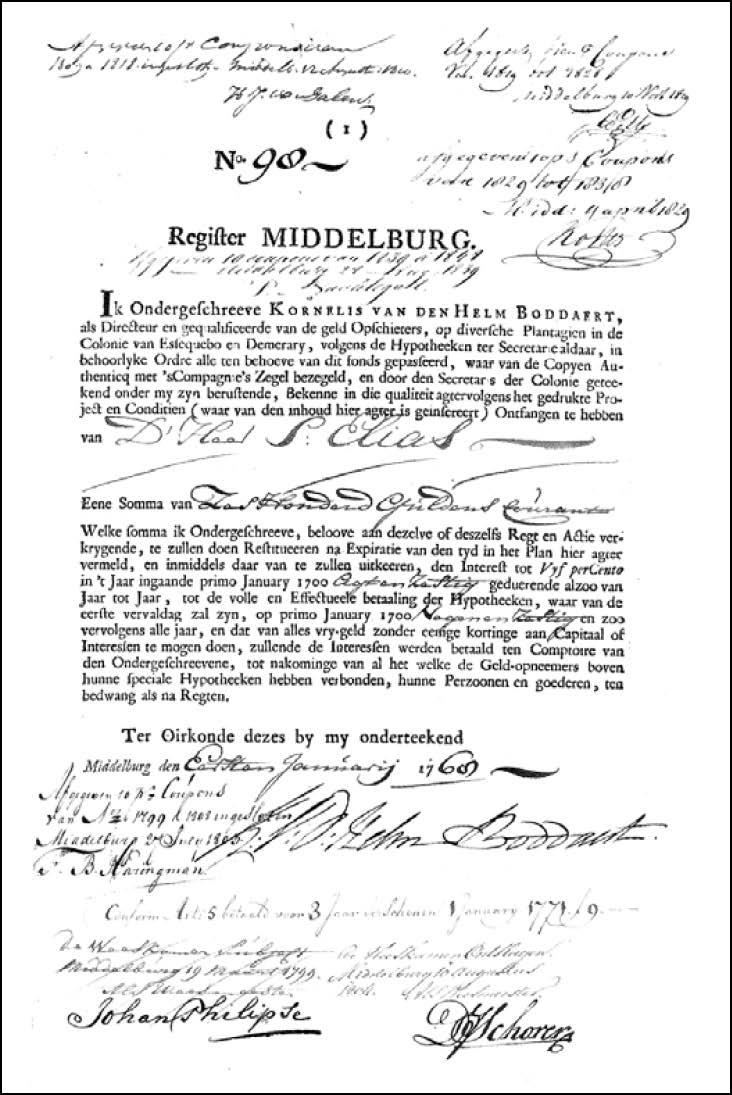 Afgegeven 10 ps Couponsvan
1818 ingeslote Middelb:
H J: van Dalen
Coupons
Van 1819 tot 1828
Middelburg
(1)
No. 98
afgegeven 10 ps Coupons
van 1829 tot 1838
Midd: 4 april 1829
Regiſter MIDDELBURG.
10 coupons van 1839 a 1848
Middelburg 1839
Ik Ondergeſchreeve KORNELIS VAN DEN HELM BODDAERT,
als Directeur en gequalificeerde van de geld Opſchieters, op diverſche Plantagien in de
Colonie van Eſſequebo en Demerary, volgens de Hypotheeken ter Secretarie aldaar, in
behoorlyke Ordre alle ten behoeve van dit fonds gepaſſeerd, waar van de Copyen Au-
thenticq met 'sCompagnie's Zegel bezegeld, en door den Secretaris der Colonie getee-
kend onder my zyn beruſtende, Bekenne in die qualiteit agtervolgens het gedrukte Pro-
ject en Conditien (waar van den inhoud hier agter is geinſereert) Ontfangen te hebben
van D' Heer P: Elias
Eene Somma van Zes Honderd Guldens Courant
Welke ſomma ik Ondergeſchreeve, beloove aan dezelve of deszelfs Regt en Actie ver-
krygende, te zullen doen Reſtitueeren na Expiratie van den tyd in het Plan hier agter
vermeld, en inmiddels daar van te zullen uitkeeren, den Intereſt tot Vyf perCento
in 't Jaar ingaande primo January 1700 Agt en Zestig geduerende alzoo van
Jaar tot Jaar, tot de volle en Effectueele betaaling der Hypotheeken, waar van de
eerſte vervaldag zal zyn, op primo January 1700 Negen en Zestig en zoo
vervolgens alle jaar, en dat van alles vry-geld zonder eenige kortinge aan Capitaal of
Intereſſen te mogen doen, zullende de Intereſſen werden betaald ten Comptoire van
den Ondergeſchreevene, tot nakominge van al het welke de Geld-opneemers boven
hunne ſpeciale Hypotheeken hebben verbonden, hunne Perzoonen en goederen, ten
bedwang als na Regten.
Ter Oirkonde dezes by my onderteekend
Middelburg den Eersten Januarij 1768
Afgegeven 10 ps Coupons
van 1799 a 1808 ingesloten
Middelburg
K: V: D: Helm Boddaert.
F. B. Haringman
Conform Art: 5 betaald voor 3 Jaar 1 January 1771
de Weeskamer
Middelburg 19 Maart 1799.
Middelburg 10 Augustus
Weesmeester
Johan Philipse
Schorer